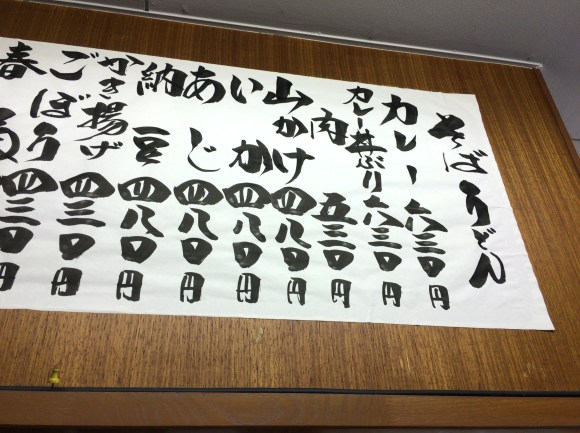 そば うどん
カレー 六三〇円
カレー丼ぶり 六三〇円
肉 五三〇円
山かけ 四八〇円
いか 四八〇円
あじ 四八〇円
納豆 四八〇円
かき揚げ 四三〇円
ごぼう 四三〇円
春菊 四三〇円